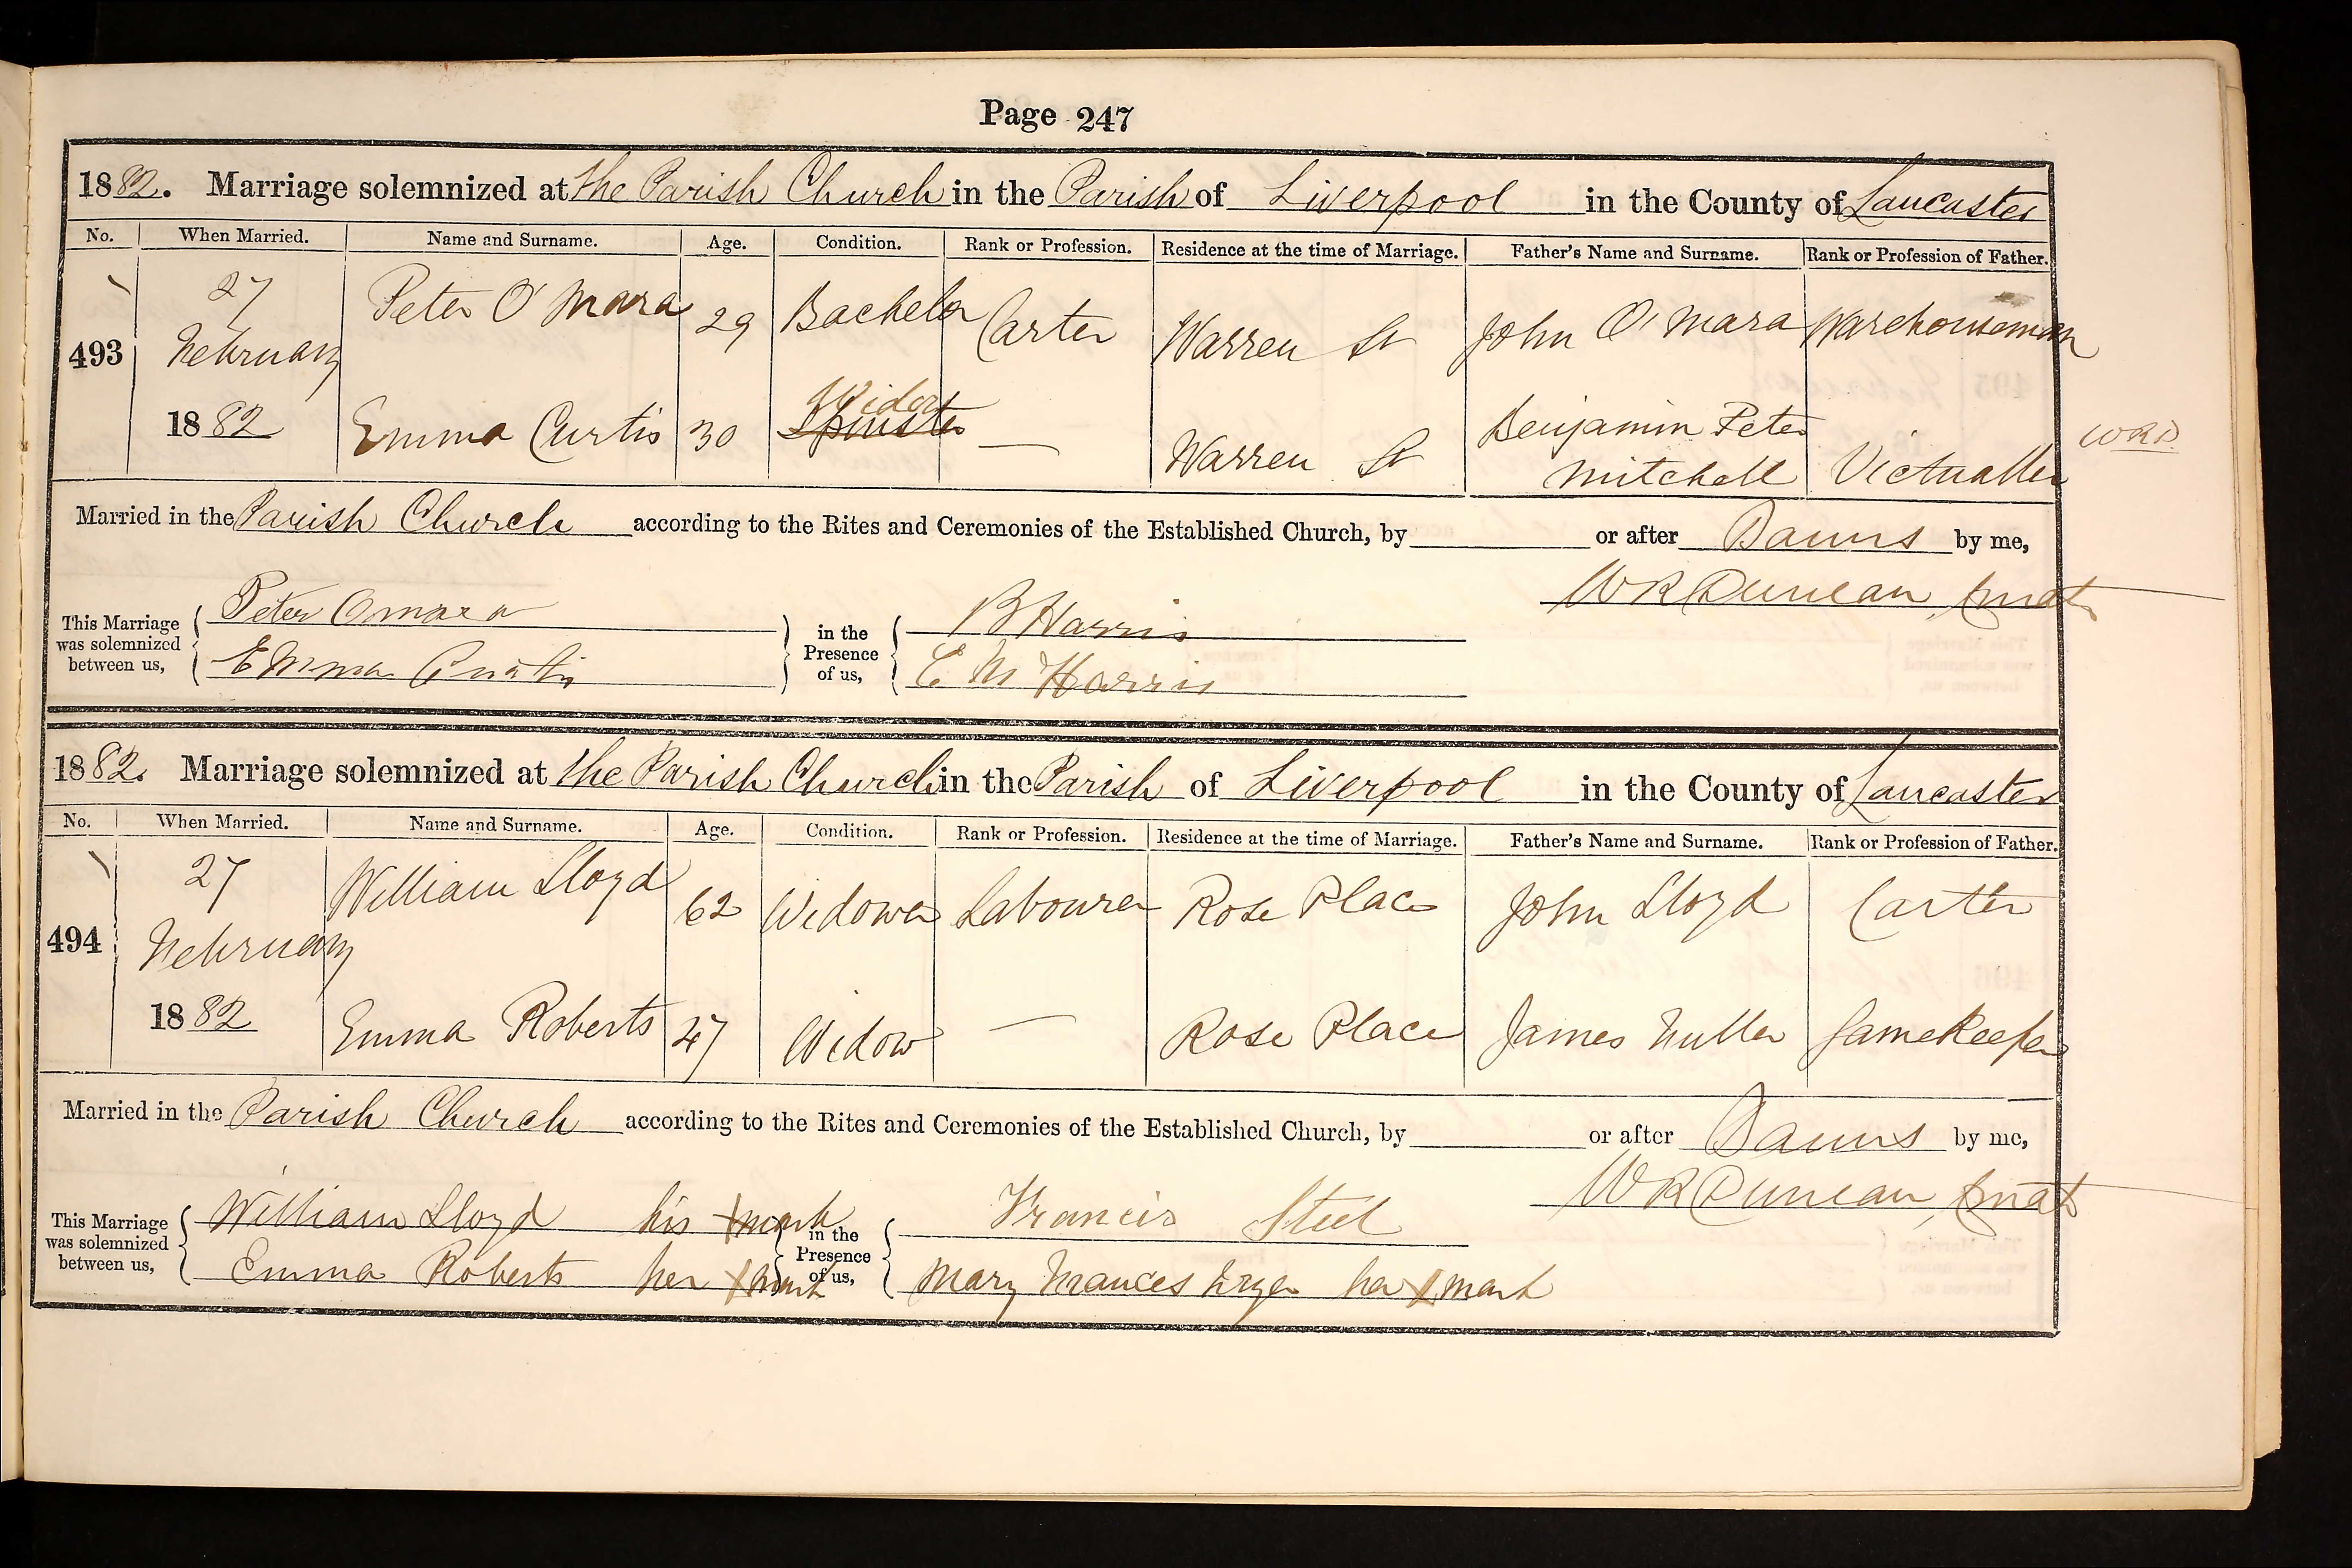 Page 247
1882. Marriage solemnized at the Parish Church in the Parish of Liverpool in the County of Lancaster
No. When Married. Name and Surname. Age. Condition. Rank or Profession. Residence at the time of Marriage. Father's Name and Surname. Rank or Profession of Father.
493 27 February 1882 Peter O'Mara 29 Bachelor Carter Warren St John O'Mara Warehouseman
Emma Curtis 30 Spinster Widow — Warren St Benjamin Peter Mitchell Victualler WRD
Married in the Parish Church according to the Rites and Ceremonies of the Established Church, by or after Banns by me,
WR Duncan, Curate
This Marriage was solemnized between us, Peter Omara in the Presence of us, B Harris
Emma Curtis E M Harris
1882. Marriage solemnized at the Parish Church in the Parish of Liverpool in the County of Lancaster
No. When Married. Name and Surname. Age. Condition. Rank or Profession. Residence at the time of Marriage. Father's Name and Surname. Rank or Profession of Father.
494 27 February 1882 William Lloyd 62 Widower Labourer Rose Place John Lloyd Carter
Emma Roberts 47 Widow — Rose Place James Gamekeeper
Married in the Parish Church according to the Rites and Ceremonies of the Established Church, by or after Banns by me,
WR Duncan, Curate
This Marriage was solemnized between us, William Lloyd his X mark in the Presence of us, Francis Steel
Emma Roberts her X mark Mary Frances her X mark